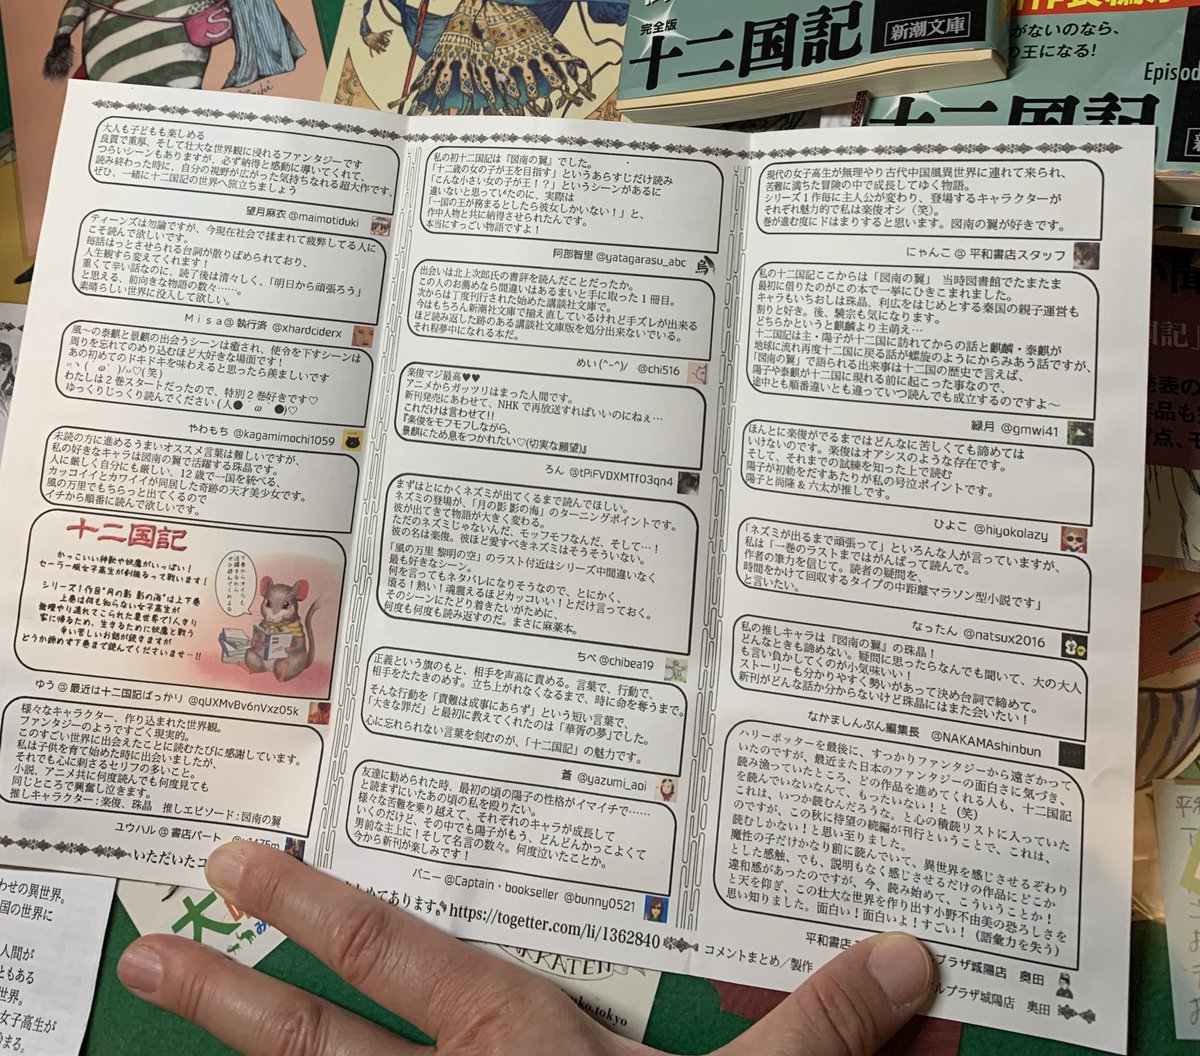 完全版
十二国記
新潮文庫
がないのなら、
の王になる!
Episod
十二国記
大人も子どもも楽しめる
良質で重厚、そして壮大な世界観に浸れるファンタジーです
つらいシーンもありますが、必ず納得と感動に導いてくれて、
読み終わった時に、自分の視野が広がった気持ちなれる超大作です、
ぜひ、一緒に十二国記の世界へ旅立ちましょう
望月麻衣 @maimotiduki
ティーンズは勿論ですが、今現在社会で揉まれて疲弊してる人に
こそ読んで欲しいです。
毎話はっとさせられる台詞が散りばめられており、
人生観すら変えてくれます!
重くて辛い話なのに、読了後は清々しく、「明日から頑張ろう」
と思える、前向きな物語の数々……。
素晴らしい世界に没入して欲しい。
Misa@執行済 @xhardciderx
風〜の泰麒と景麒の出会うシーンは癒され、使令を下すシーンは
周りを忘れてのめり込むほど大好きな場面です!
あの初めてのドキドキを味わえると思ったら羨ましいです
わたしは2巻スタートだったので、特別2巻好きです♡
ゆっくりじっくり読んでください(人● ω ●)♡
やわもち @kagamimochi1059
未読の方に進めるうまいオススメ言葉は難しいですが、
私の好きなキャラは図南の翼で活躍する珠晶です。
人に厳しく自分にも厳しい、12歳で一国を統べる、
カッコイイとカワイイが同居した奇跡の天才美少女です。
風の万里でもちらっと出てくるので
イチから順番に読んで欲しいです。
十二国記
かっこいい神獣や妖魔がいっぱい!
セーラー服女子高生が剣振るって戦います!
シリーズ1作目"月の影 影の海"は上下巻
上巻は何も知らない女子高生が
無理やり連れてこられた異世界で1人きり
家に帰るため、生きるために妖魔と戦う
辛い苦しいお話が続きますが
どうか諦めず下巻まで読んでくださいませー!!
ゆう@最近は十二国記ばっかり @qUXMvBv6nVxz05k
様々なキャラクター、作り込まれた世界観。
ファンタジーのようですごく現実的。
このすごい世界に出会えたことに読むたびに感謝しています。
私は子供を育て始めた時に出会いましたが、
それでも心に刺さるセリフの多いこと。
小説、アニメ共に何度読んでも何度見ても
同じところで興奮し泣きます。
推しキャラクター:楽俊、珠晶 推しエピソード:図南の翼
ユウハル@書店パート
いただいたコ
私の初十二国記は『図南の翼』でした。
「十二歳の女の子が王を目指す」というあらすじだけ読み
「こんな小さい女の子が王!?」というシーンがあるに
違いないと思っていたのに、実際は
「一国の王が務まるとしたら彼女しかいない!」と、
作中人物と共に納得させられたんです。
本当にすっごい物語ですよ!
阿部智里 @yatagarasu_abc
出会いは北上次郎氏の書評を読んだことだったか。
この人のお薦めなら間違いはあるまいと手に取った1冊目。
次からは丁度刊行され始めた講談社文庫で。
今はもちろん新潮社文庫で揃え直しているけれど手ズレが出来る
ほど読み返した跡のある講談社文庫版を処分出来ないでいる。
それ程夢中になれる本だ。
めい(^-^)/ @chi516
楽俊マジ最高♥♥
アニメからガッツリはまった人間です。
新刊発売にあわせて、NHKで再放送すればいいのにねぇ…
これだけは言わせて!!
『楽俊をモフモフしながら、
景麒にため息をつかれたい♡(切実な願望)』
ろん @tPiFVDXMTfO3qn4
まずはとにかくネズミが出てくるまで読んでほしい。
ネズミの登場が、「月の影 影の海」のターニングポイントです。
彼が出てきて物語が大きく変わる。
ただのネズミじゃないんだ、モッフモフなんだ、そして…!
彼の名は楽俊。彼ほど愛すべきネズミはそうそういない。
「風の万里 黎明の空」のラスト付近はシリーズ中間違いなく
最も好きなシーン。
何を言ってもネタバレになりそうなので、とにかく、
滾る!熱い!魂震えるほどカッコいい!とだけ言っておく。
そのシーンにたどり着きたいがために、
何度も何度も読み返すのだ。まさに麻薬本。
ちべ @chibea19
正義という旗のもと、相手を声高に責める。言葉で、行動で、
相手をたたきのめす。立ち上がれなくなるまで、時に命を奪うまで。
そんな行動を「責難は成事にあらず」という短い言葉で、
「大きな罪だ」と最初に教えてくれたのは「華胥の夢」でした。
心に忘れられない言葉を刻むのが、「十二国記」の魅力です。
蒼 @yazumi_aoi
友達に勧められた時、最初の頃の陽子の性格がイマイチで……
と読まずにいたあの頃の私を殴りたい。
様々な苦難を乗り越えて、それぞれのキャラが成長して
いくのだけど、その中でも陽子がもう、どんどんかっこよくて
男前な主上に!そして名言の数々。何度泣いたことか。
今から新刊が楽しみです!
バニー@Captain・bookseller @bunny0521
まとめてあります。https://togetter.com/li/1362840
現代の女子高生が無理やり古代中国風異世界に連れて来られ、
苦難に満ちた冒険の中で成長してゆく物語。
シリーズ1作毎に主人公が変わり、登場するキャラクターが
それぞれ魅力的で私は楽俊オシ(笑)。
巻が進む度に下はまりすると思います。図南の翼が好きです。
にゃんこ@平和書店スタッフ
私の十二国記ここからは「図南の翼」 当時図書館でたまたま
最初に借りたのがこの本で一挙にひきこまれました。
キャラもいちおしは珠晶、利広をはじめとする秦国の親子運営も
割りと好き。後、驍宗も気になります。
どちらかというと麒麟より主萌え…
十二国記は主・陽子が十二国に訪れてからの話と麒麟・泰麒が
地球に流れ再度十二国に戻る話が螺旋のようにからみあう話ですが、
「図南の翼」で語られる出来事は十二国の歴史で言えば、
陽子や泰麒が十二国に現れる前に起こった事なので、
途中とも順番違いとも違っていつ読んでも成立するのですよ〜
緑月 @gmwi41
ほんとに楽俊がでるまではどんなに苦しくても諦めては
いけないのです。楽俊はオアシスのような存在です。
そして、それまでの試練を知った上で読む
陽子が初勅をだすあたりが私の号泣ポイントです。
陽子と尚隆&六太が推しです。
ひよこ @hiyokolazy
「ネズミが出るまで頑張って」といろんな人が言っていますが、
私は「一巻のラストまではがんばって読んで。
作者の筆力を信じて。読者の疑問を、
時間をかけて回収するタイプの中距離マラソン型小説です」
と言いたい。
なったん @natsux2016
私の推しキャラは『図南の翼』の珠晶!
どんなときも諦めない。疑問に思ったらなんでも聞いて、大の大人
も言い負かしてくのが小気味いい!
ストーリーも分かりやすく勢いがあって決め台詞で締めて。
新刊がどんな話か分からないけど珠晶にはまた会いたい!
なかましんぶん編集長 @NAKAMAshinbun
ハリーポッターを最後に、すっかりファンタジーから遠ざかって
いたのですが、最近また日本のファンタジーの面白さに気づき、
読み漁っていたところ、どの作品を進めてくれる人も、十二国記
を読んでいないなんて、もったいない!と(笑)
これは、いつか読むんだろうな。と心の積読リストに入っていた
のですが、この秋に待望の続編が刊行ということで、これは、
読むしかない!と思い至りました。
魔性の子だけかなり前に読んでいて、異世界を感じさせるぞわり
とした感触、でも、説明もなく感じさせるだけの作品にどこか
違和感があったのですが、今、読み始めて、こういうことか!
と天を仰ぎ、この壮大な世界を作り出す小野不由美の恐ろしさを
思い知りました。面白い!面白いよ!すごい!(語彙力を失う)
平和書店
プラザ城陽店 奥田
コメントまとめ/製作
ルプラザ城陽店 奥田
わせの異世界。
国の世界に
人間が
ともある
世界。
女子高生が
まる。